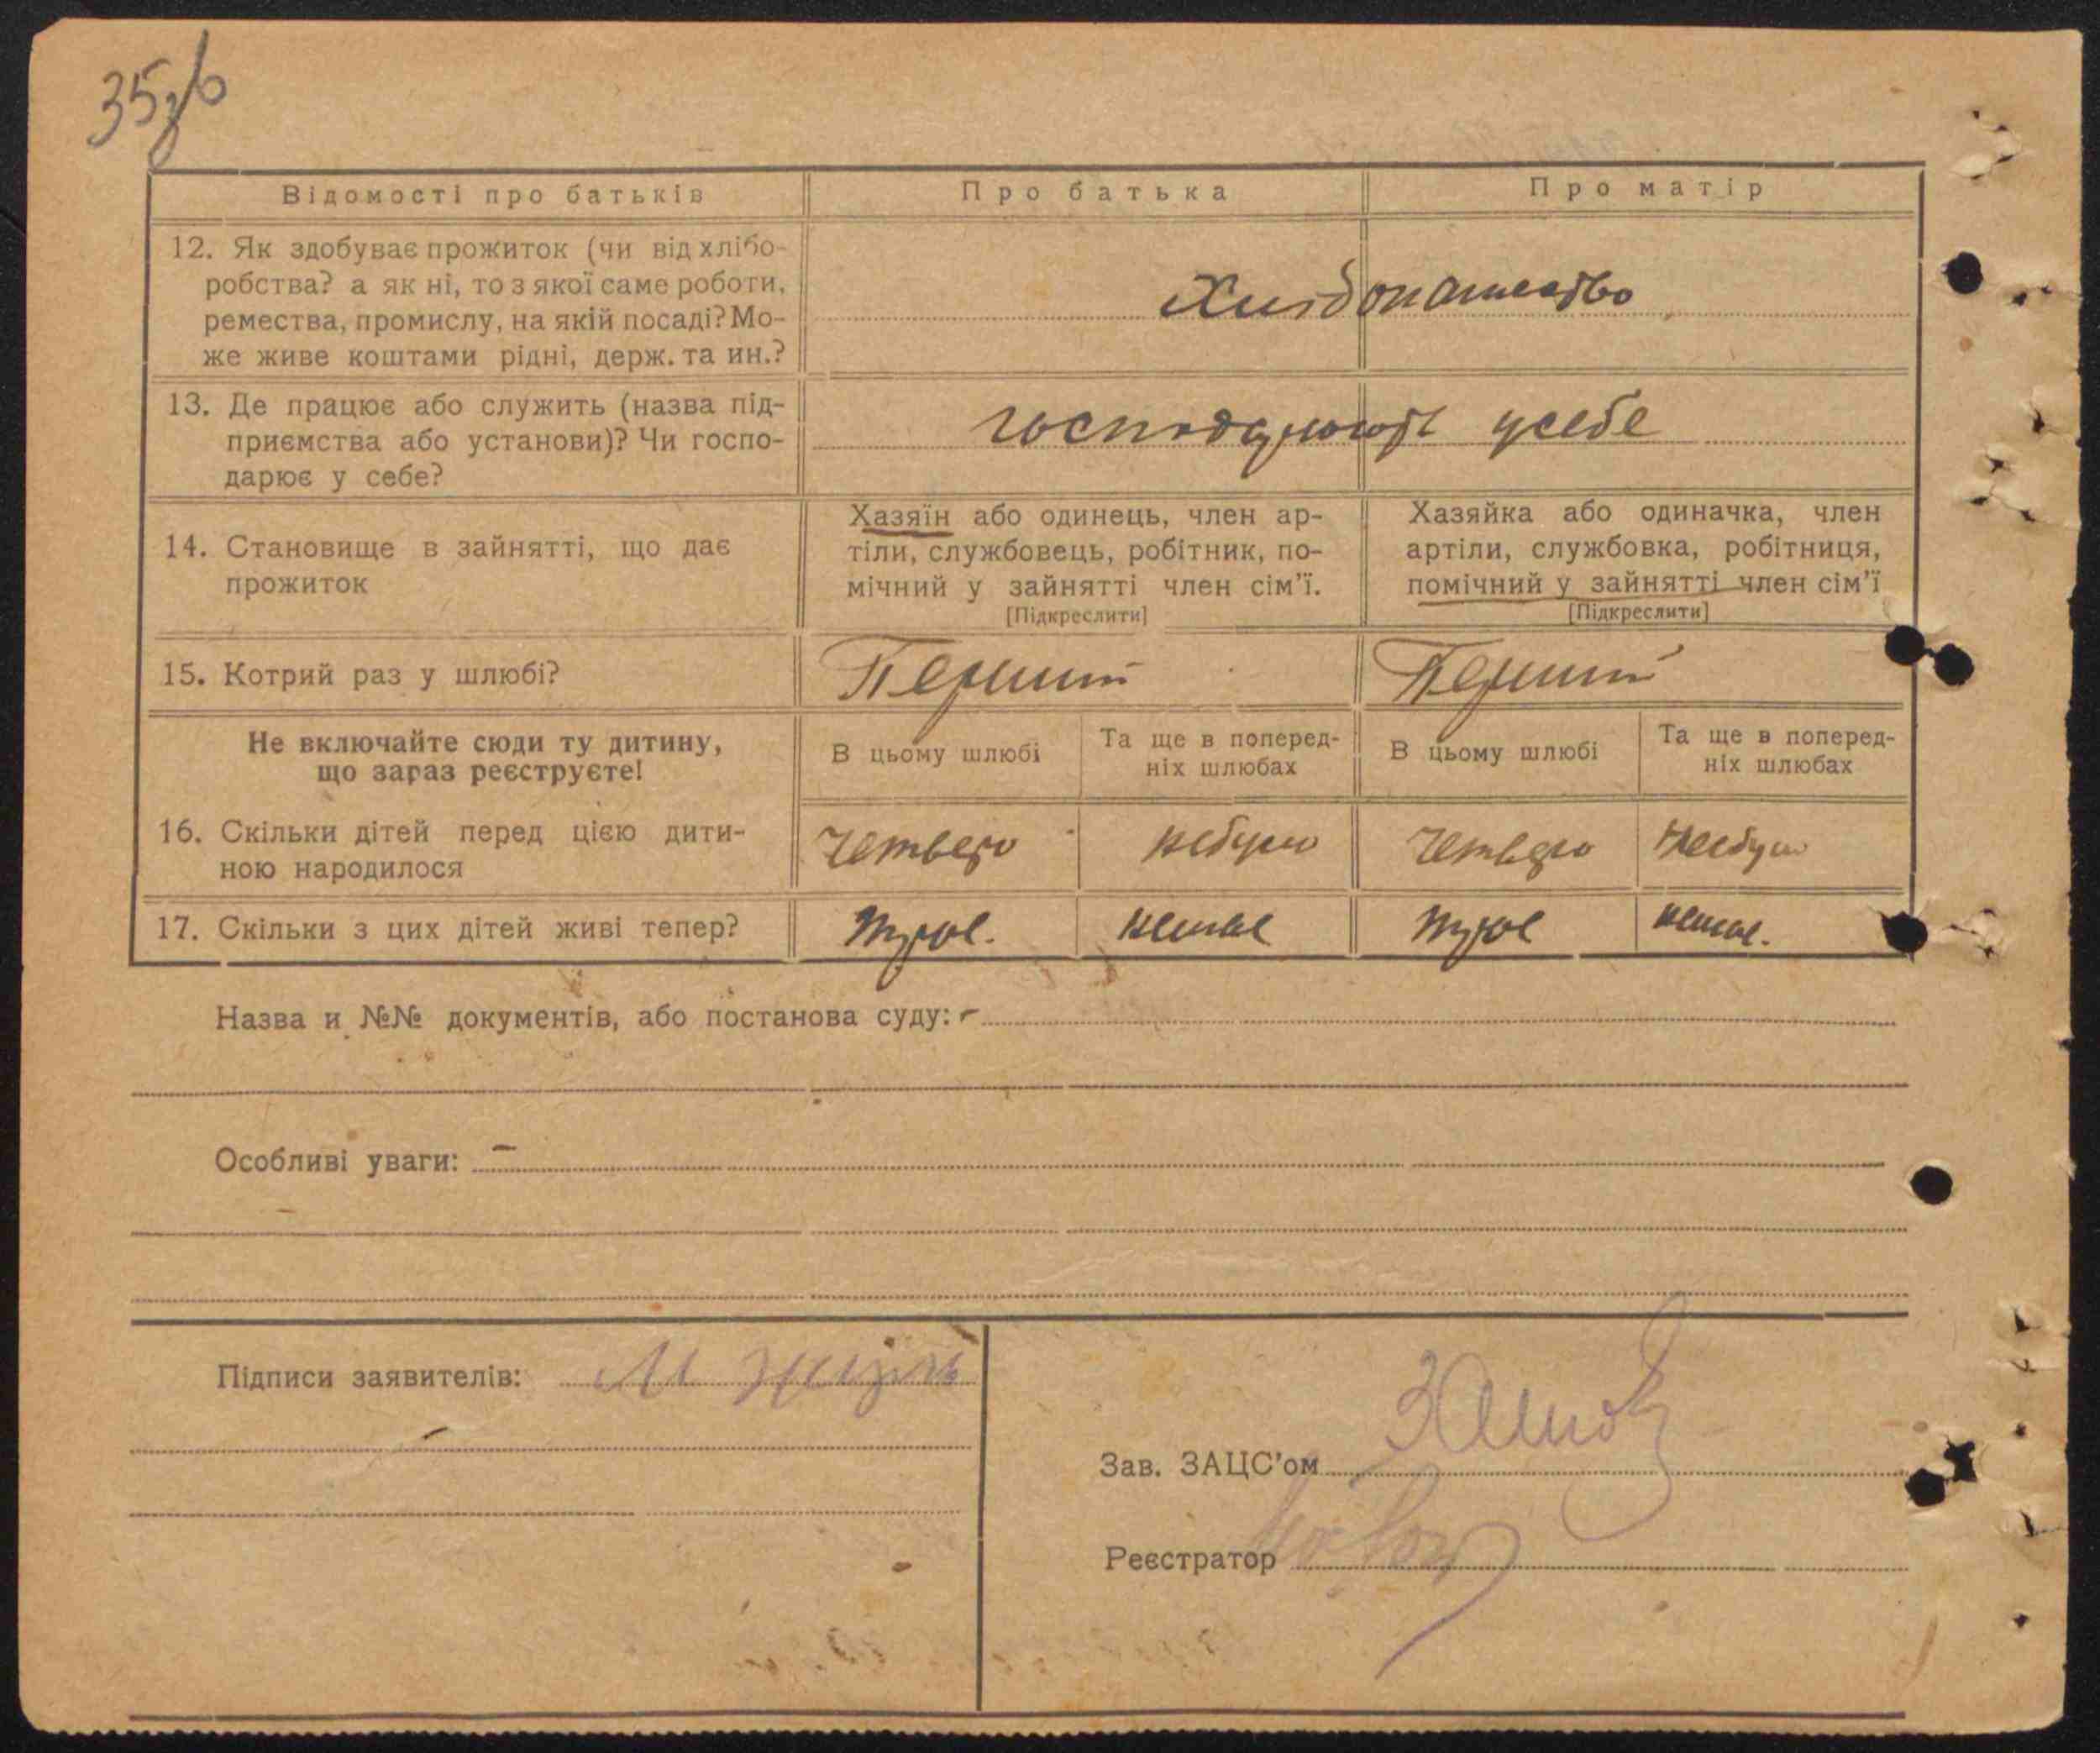 35зб
Відомості про батьків
Про батька
Про матір
12. Як здобуває прожиток (чи від хлібо-
робства? а як ні, то з якої саме роботи,
ремества, промислу, на якій посаді? Мо-
же живе коштами рідні, держ. та ин.?
Хлібопашество
13. Де працює або служить (назва під-
приємства або установи)? Чи госпо-
дарює у себе?
господарюють усебе
14. Становище в зайнятті, що дає
прожиток
Хазяїн або одинець, член ар-
тіли, службовець, робітник, по-
мічний у зайнятті член сім'ї.
[Підкреслити]
Хазяйка або одиначка, член
артіли, службовка, робітниця,
помічний у зайнятті член сім'ї
[Підкреслити]
15. Котрий раз у шлюбі?
Перший
Перший
Не включайте сюди ту дитину,
що зараз реєструєте!
В цьому шлюбі
Та ще в поперед-
ніх шлюбах
В цьому шлюбі
Та ще в поперед-
ніх шлюбах
16. Скільки дітей перед цією дити-
ною народилося
Четверо
небуло
Четверо
Небуло
17. Скільки з цих дітей живі тепер?
Трое.
немае
Трое
немае.
Назва и №№ документів, або постанова суду: -
Особливі уваги: -
Підписи заявителів: М
Зав. ЗАЦС'ом
Реєстратор